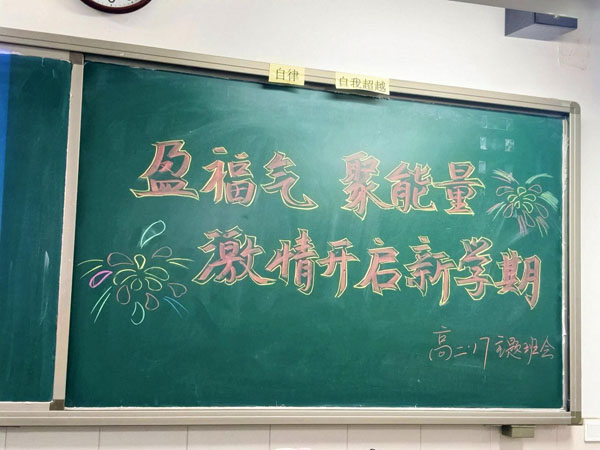 自律
自我超越
盈福气 聚能量
激情开启新学期
高二.17主题班会